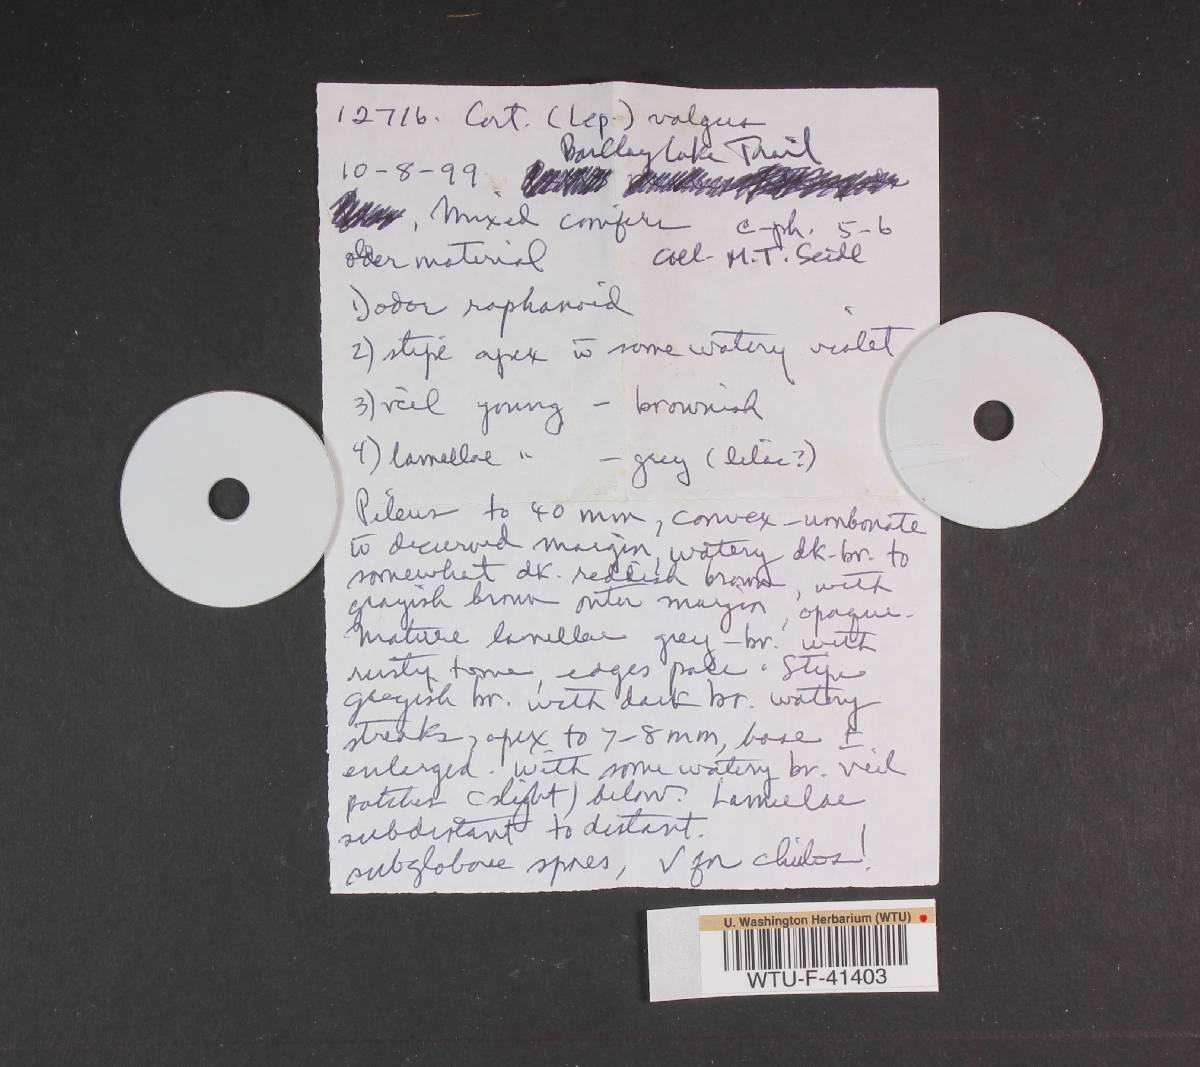 12716. Cort. (Lep.) valgus
Barclay Lake Trail
10-8-99
, Mixed conifers c-ph. 5-6
older material Coll- M.T. Seidl
1) odor raphanoid
2) stipe apex w some watery violet
3) veil young - brownish
4) lamellae " - grey (lilac?)
Pileus to 40 mm, convex-umbonate
w decurved margin, watery dk-br. to
somewhat dk. reddish brown, with
grayish brown outer margin, opaque.
Mature lamellae grey-br. with
rusty tone, edges pale. Stipe
greyish br. with dark br. watery
streaks, apex to 7-8 mm, base ±
enlarged. With some watery br. veil
patches (slight) below. Lamellae
subdistant to distant.
subglobose spores, √ for cheilos!
U. Washington Herbarium (WTU)
WTU-F-41403